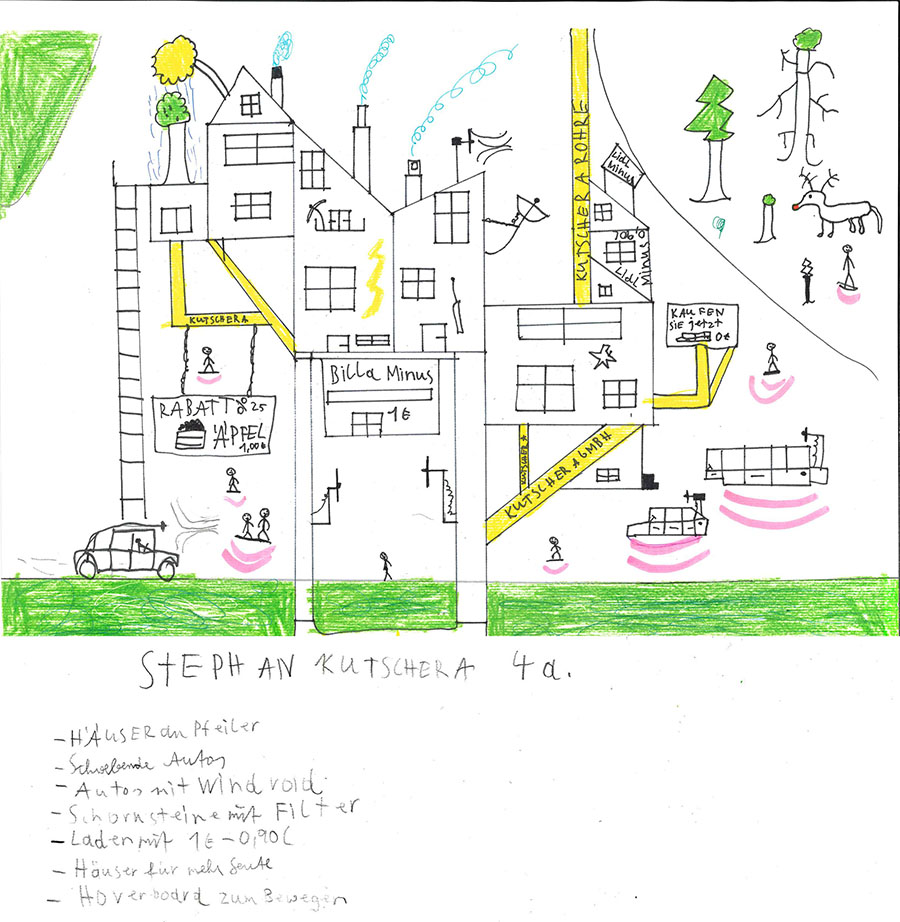 KUTSCHERA ROHRE
Lidl
Minus
Lidl
Minus
KAUFEN
SIE jetzt
0€
KUTSCHERA
BILLA MINUS
1€
RABATT % 25
ÄPFEL
1,00€
KUTSCHERA
KUTSCHERA GMBH
STEPHAN KUTSCHERA 4a.
- HÄUSER an Pfeiler
- Schwebende Autos
- Autos mit Windrad
- Schornsteine mit Filter
- Laden mit 1€ - 0,90€
- Häuser für mehr Leute
- Hoverboard zum Bewegen